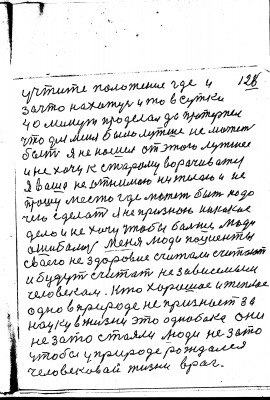 128
учтите положение где и
зачто нахожус и то в сутки
40 минут проделал да протерпел
что для меня было лутше не может
быть я не нашел от этого лутшее
и не хочу к старому ворачиватсу
Я ваше не отнимаю ни тело и не
прошу место где может быт надо
чего сделат я не признаю никакое
дело и не хочу чтобы более люди
ошибалис меня люди пациенты
своего не здоровие считали считают
и будут считат не зависемым
человеком. Кто хорошее и теплое
одно в природе не признает за
науку в жизни это одно бока они
не за то стояли люди не за то
чтобы у природе рождался
человековай жизни враг.